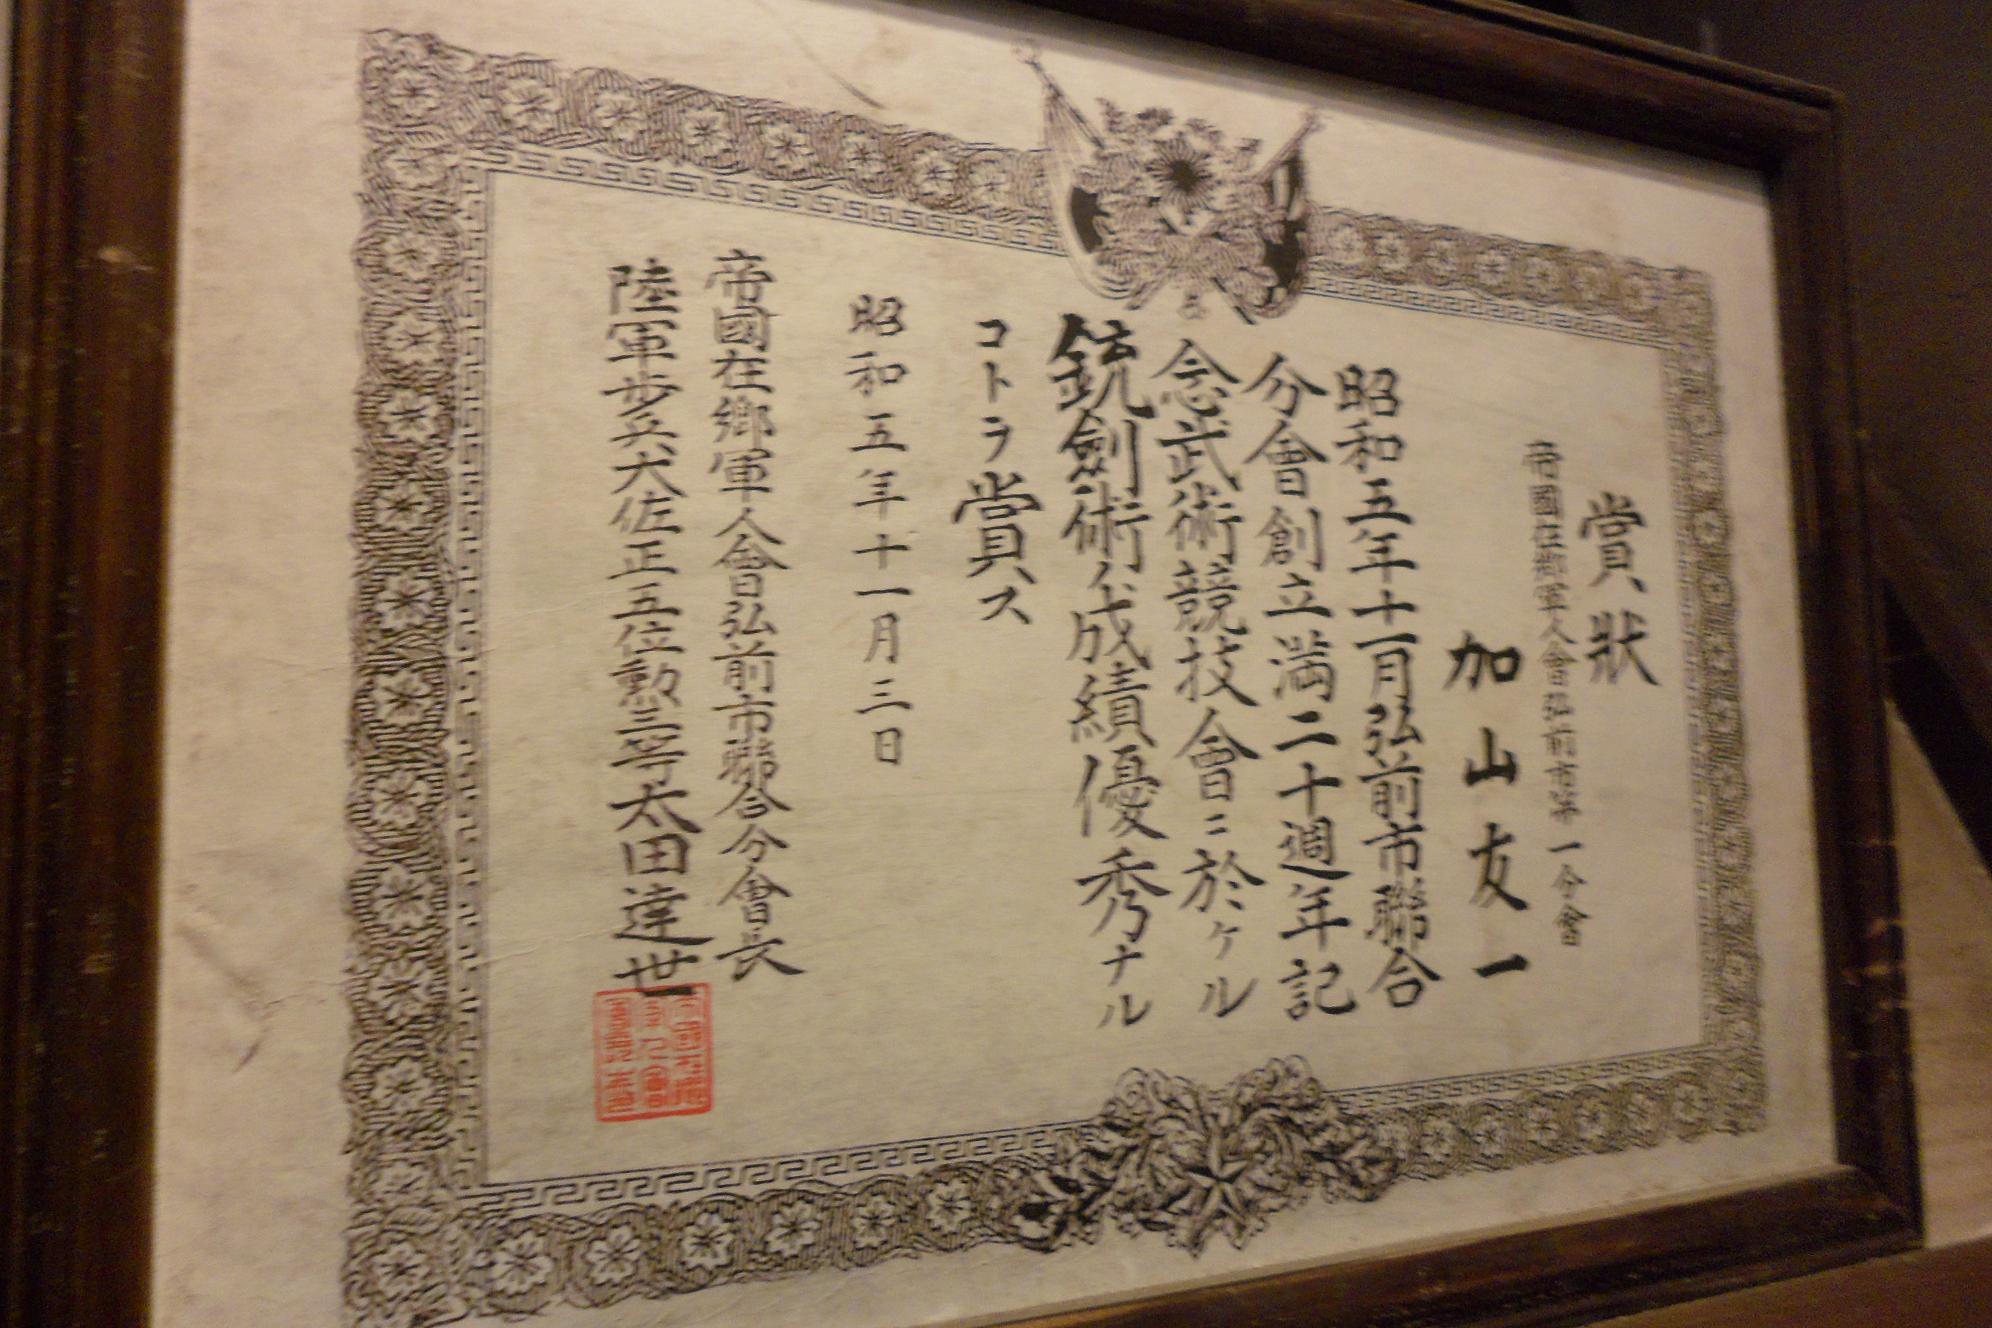 賞狀
帝國在郷軍人會弘前市第一分會
加山友一
昭和五年十一月弘前市聯合
分會創立満二十週年記
念武術競技會ニ於ケル
銃劍術ノ成績優秀ナル
コトヲ賞ス
昭和五年十一月三日
帝國在郷軍人會弘前市聯合分會長
陸軍歩兵大佐正五位勲三等太田達世